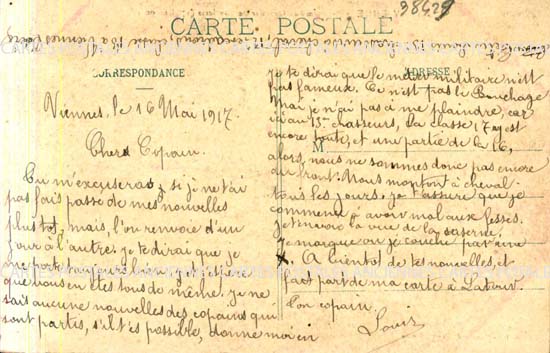 38429
CARTE POSTALE
CORRESPONDANCE
ADRESSE
Viennes, le 16 Mai 1917.
Cher Copain.
Tu m'excuseras si je ne t'ai
pas fais passe de mes nouvelles
plus tot, mais, l'on renvoie d'un
jour à l'autre. je te dirai que je
me porte toujours bien, et j'espere
que vous en êtes tous de même. je ne
sait aucune nouvelles des copains qui
sont partis, s'il t'es possible, donne moi en
je te dirai que le métier militaire n'est
pas fameux. Ce n'est pas le Bouchage
Mai je n'ai pas à me plaindre, car
ici au 13e chasseurs, la classe 17 y est
encore toute, et une partie de la 16,
alors, nous ne sommes donc pas encore
du front. Nous monton à cheval
tous les jours, je t'assure que je
commence y avoir mal aux fesses.
Je t'envoie la vue de la caserne.
je marque ou je couche par une
x. A bientot de tes nouvelles, et
fait part de ma carte à Latour.
Ton copain.
Louis